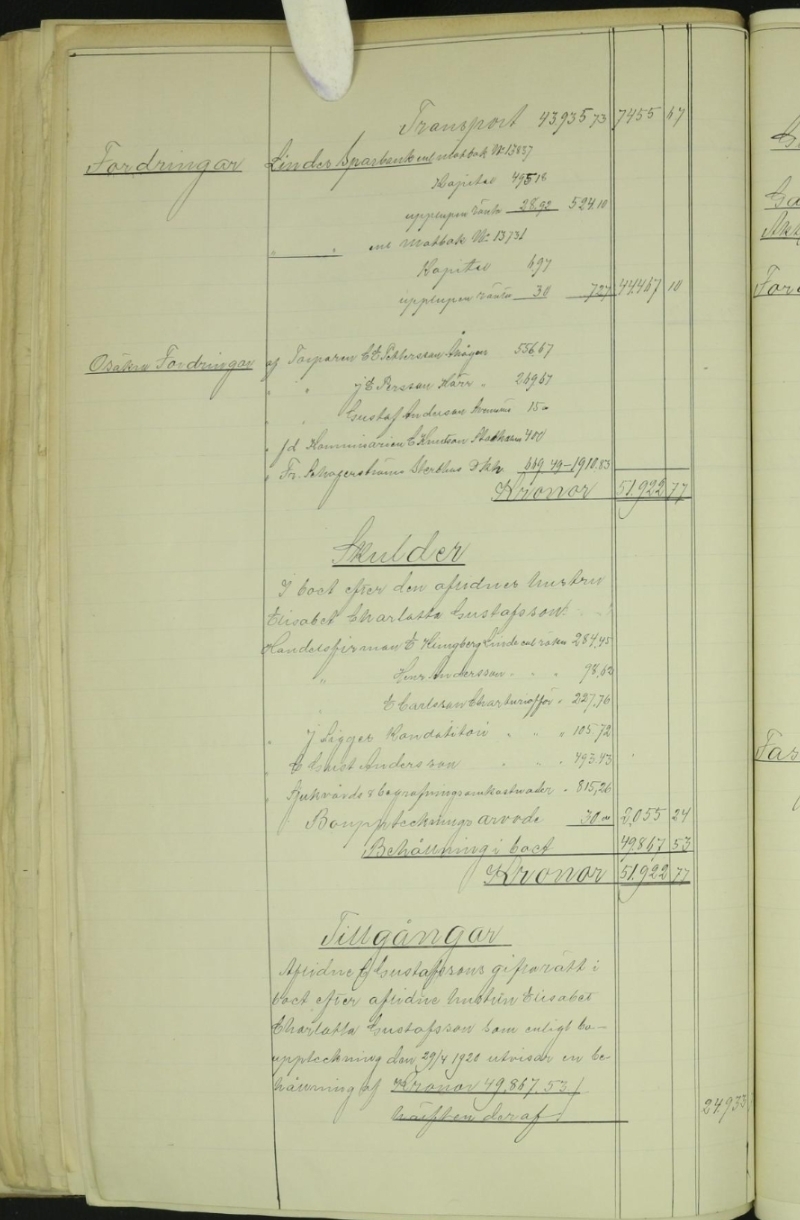 Transport 43935 73 7455 67
Fordringar Lindes Sparbank enl motbok No 13837
Kapital 495 18
upplupen ränta 28.92 524.10
" " enl Motbok No 13731
Kapital 697
upplupen ränta 30 727 44467 10
Osäkra Fordringar af Torparen C E Pettersson 556.67
" J E Persson 269 67
" Gustaf Andersson 15 -
" fd Komminarien C Knutson Stockholm 400
" Fr. Sterbhus 669 49 - 1910.83
Kronor 51.922 77
Skulder
I boet efter den aflidnes hustru
Elisabet Charlotta Gustafsson.
Handelsfirman E Klingberg Linde enl räkn 284,45
" Andersson " " 98,62
" E Carlsson " 227,76
" J " " " 105,72
" C Gust Andersson " " " 493.43
" Sjukvårds & begrafningsomkostnader " 815,26
Bouppteckningsarvode 30 00 2,055 24
Behållning i boet 49.867 53
Kronor 51.922 77
Tillgångar
Aflidne Gustafssons giftorätt i
boet efter aflidne hustrun Elisabet
Charlotta Gustafsson som enligt bo-
uppteckning den 29/4 1920 utvisar en be-
hållning af Kronor 49.867.53/
hälften deraf 24933